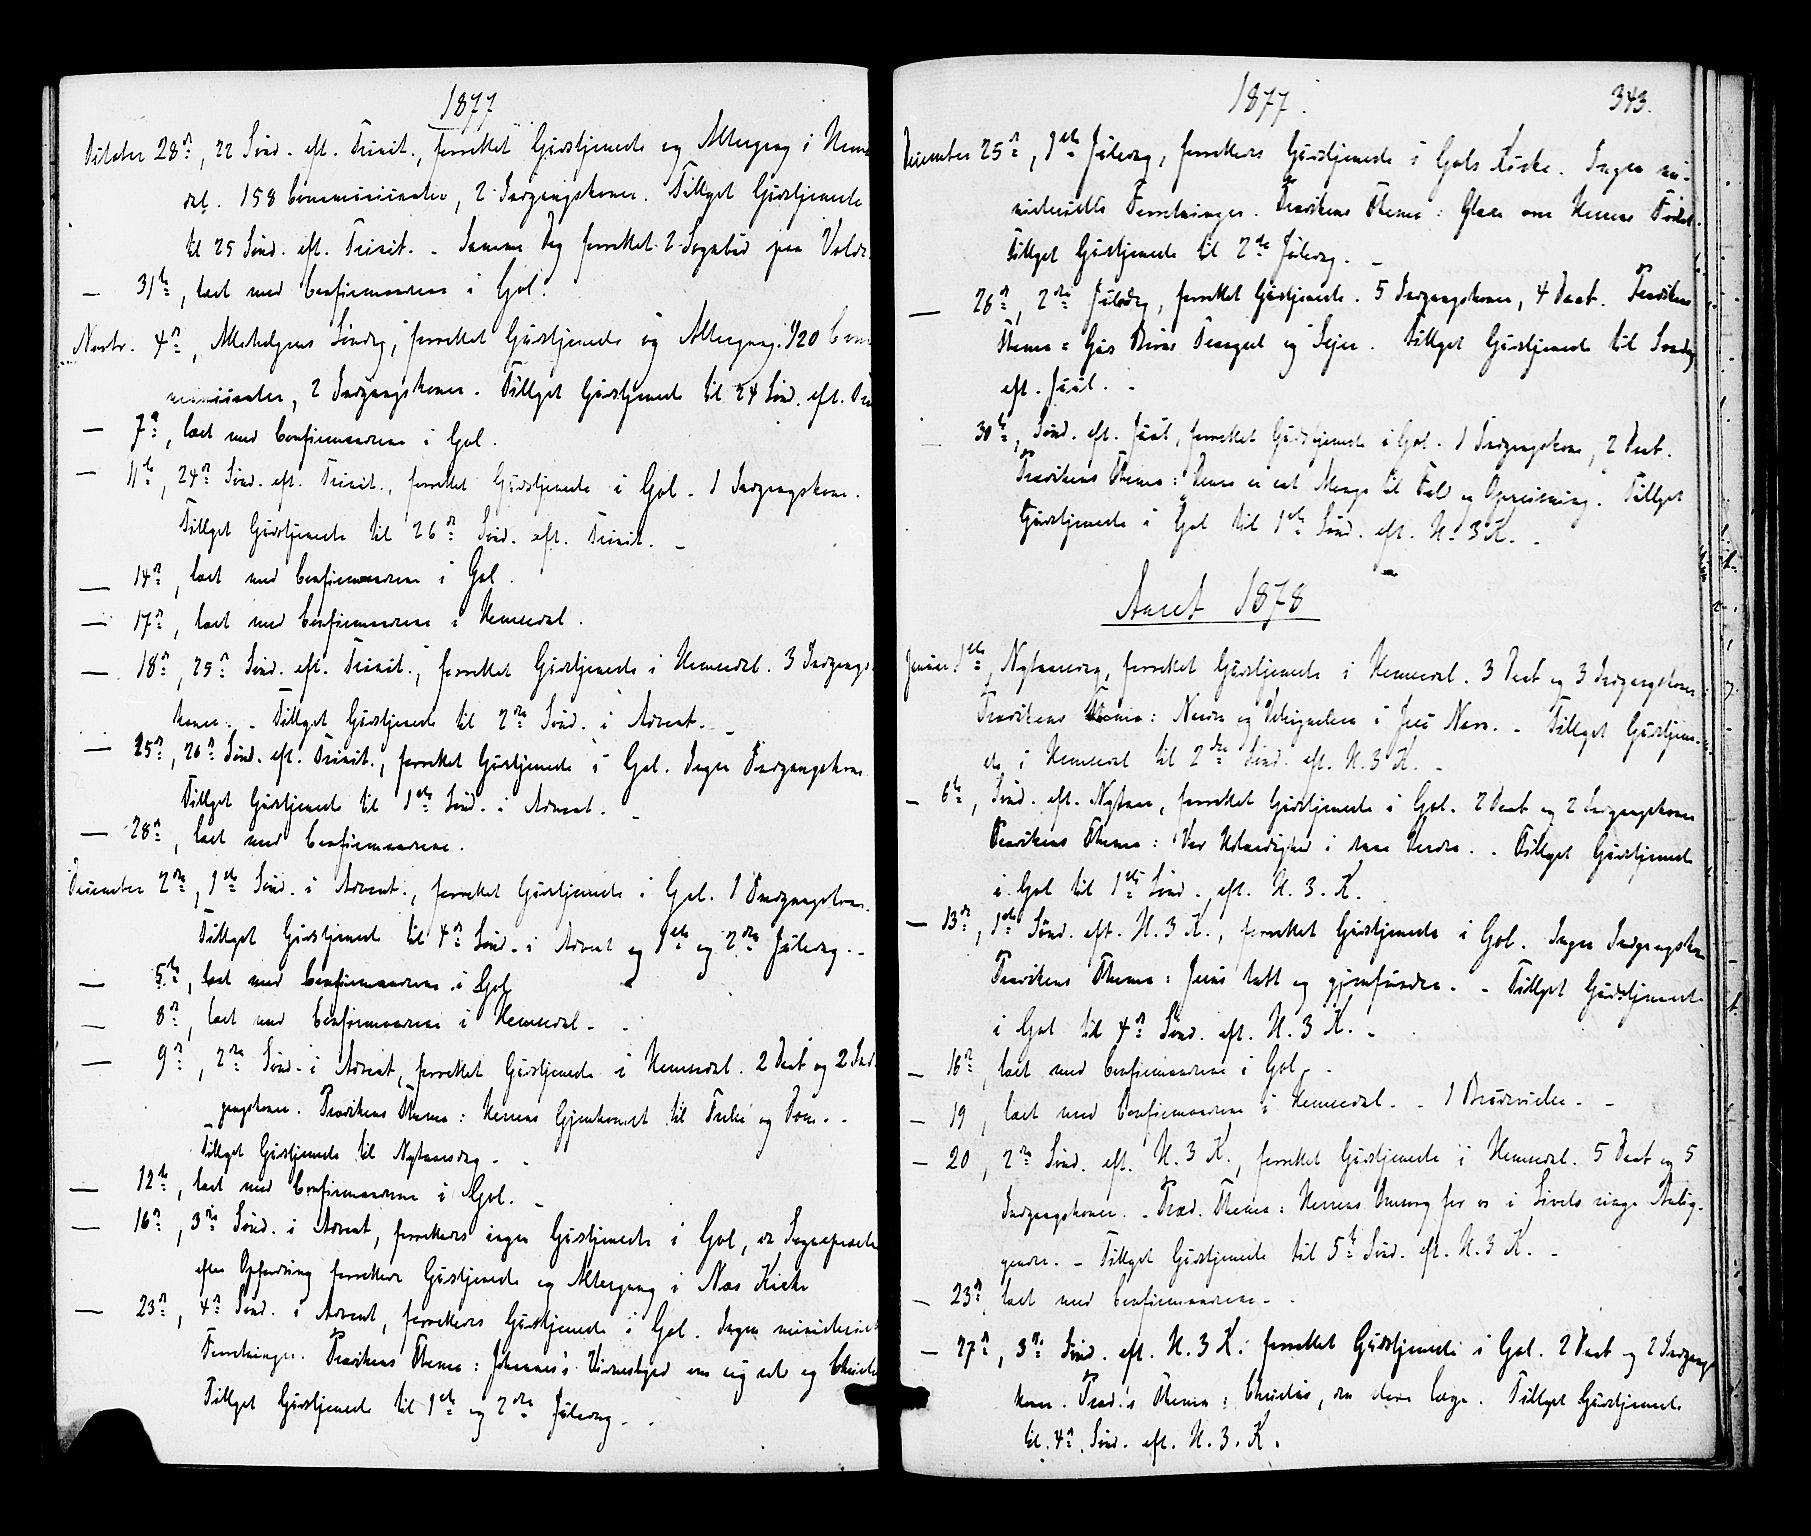 1877
October 28de, 22 Sönd. eft. Trinit., forrettet Gudstjeneste og Altergang i Hemse
dal. 158 Communicanter, 2 Indgangskoner. Tillyst Gudstjeneste
til 25 Sönd. eft. Trinit. - Samme Dag forrettet 2 Sognebud paa
— 31te, læst med Confirmanderne i Gol.
Novbr. 4de, Allehelgens Söndag, forrettet Gudstjeneste og Altergang. 120 Com
municanter, 2 Indgangskoner. Tillyst Gudstjeneste til 24 Sönd. eft. Tri
— 7de, læst med Confirmanderne i Gol.
— 11te, 24de Sönd. eft. Trinit., forrettet Gudstjeneste i Gol - 1 Indgangskone.
Tillyst Gudstjeneste til 26de Sönd. eft. Trinit. -
— 14de, læst med Confirmanderne i Gol.
— 17de, læst med Confirmanderne i Hemsedal.
— 18de, 25de Sönd. eft. Trinit., forrettet Gudstjeneste i Hemsedal. 3 Indgangs-
koner. - Tillyst Gudstjeneste til 2den Sönd. i Advent. -
— 25de, 26de Sönd. eft. Trinit., forrettet Gudstjeneste i Gol. Ingen Indgangskone
Tillyst Gudstjeneste til 1ste Sönd. i Advent. -
— 28de, læst med Confirmanderne.
December 2den, 1ste Sönd. i Advent., forrettet Gudstjeneste i Gol. 1 Indgangskone.
Tillyst Gudstjeneste til 4de Sönd. i Advent og 1ste og 2den Juledag. -
— 5te, læst med Confirmanderne i Gol
— 8de, læst med Confirmanderne i Hemsedal. -
— 9de, 2den Sönd. i Advent, forrettet Gudstjeneste i Hemsedal. 2 Daab og 2 Ind-
gangskoner. Prædikens Thema: Herrens Gjenkomst til Frelse og Dom. -
Tillyst Gudstjeneste til Nytaarsdag. -
— 12te, læst med Confirmanderne i Gol. -
— 16de, 3die Sönd. i Advent, forrettedes ingen Gudstjeneste i Gol, da Sognepræsten
efter Opfordring forrettede Gudstjeneste og Altergang i Næs Kirke
— 23de, 4de Sönd. i Advent, forrettedes Gudstjeneste i Gol. Ingen ministeriel
Forretninger. Prædikens Thema: Johannes's Vidnesbyrd om sig selv og Christus
Tillyst Gudstjeneste til 1ste og 2den Juledag. -
1877.
343.
December 25de, 1ste Juledag, forrettedes Gudstjeneste i Gols Kirke. Ingen mi-
nisterielle Forretninger. Prædikens Thema: Glæde over Herrens Födsel.
Tillyst Gudstjeneste til 2den Juledag. -
— 26de, 2den Juledag, forrettet Gudstjeneste. 5 Indgangskoner, 4 Daab. Prædikens
Thema: Guds Börns Trængsel og Sejer. Tillyst Gudstjeneste til Söndag
eft. Juul. -
— 30te, Sönd. eft. Juul, forrettet Gudstjeneste i Gol. 1 Indgangskone, 2 Daab.
Prædikens Thema: Denne er sat Mange til Fald og Opreisning. Tillyst
Gudstjeneste i Gol til 1ste Sönd. eft. H. 3 K. -
Aaret 1878
Januar 1ste, Nytaarsdag, forrettet Gudstjeneste i Hemsedal. 3 Daab og 3 Indgangskoner.
Prædikens Thema: Naade og Velsignelse i Jesu Navn. - Tillyst Gudstjene-
ste i Hemsedal til 2den Sönd. eft. H. 3 K. -
— 6te, Sönd. eft. Nytaar, forrettet Gudstjeneste i Gol. 2 Daab og 2 Indgangskoner
Prædikens Thema: Vor Udlændighed i denne Verden. - Tillyst Gudstjeneste
i Gol til 1ste Sönd. eft. H. 3. K.
— 13de, 1ste Sönd. eft. H. 3 K., forrettet Gudstjeneste i Gol. Ingen Indgangsko
Prædikens Thema: Jesus tabt og gjenfunden. - Tillyst Gudstjeneste
i Gol til 4de Sönd. eft. H. 3 K. -
— 16de, læst med Confirmanderne i Gol. -
— 19, læst med Confirmanderne i Hemsedal. - 1 Brudevielse. -
— 20, 2den Sönd. eft. H. 3 K., forrettet Gudstjeneste i Hemsedal. 5 Daab og 5
Indgangskoner. - Præd. Thema: Herrens Omsorg for os i Livets ringe Anlig-
gender. - Tillyst Gudstjeneste til 5te Sönd. eft. H. 3 K. -
— 23de læst med Confirmanderne. -
— 27de, 3die Sönd. eft. H. 3 K. forrettet Gudstjeneste i Gol. 2 Daab og 2 Indgangs
koner. Præd.'s Thema: Christus, den store Læge. Tillyst Gudstjeneste
til 4de Sönd. eft. H. 3. K.